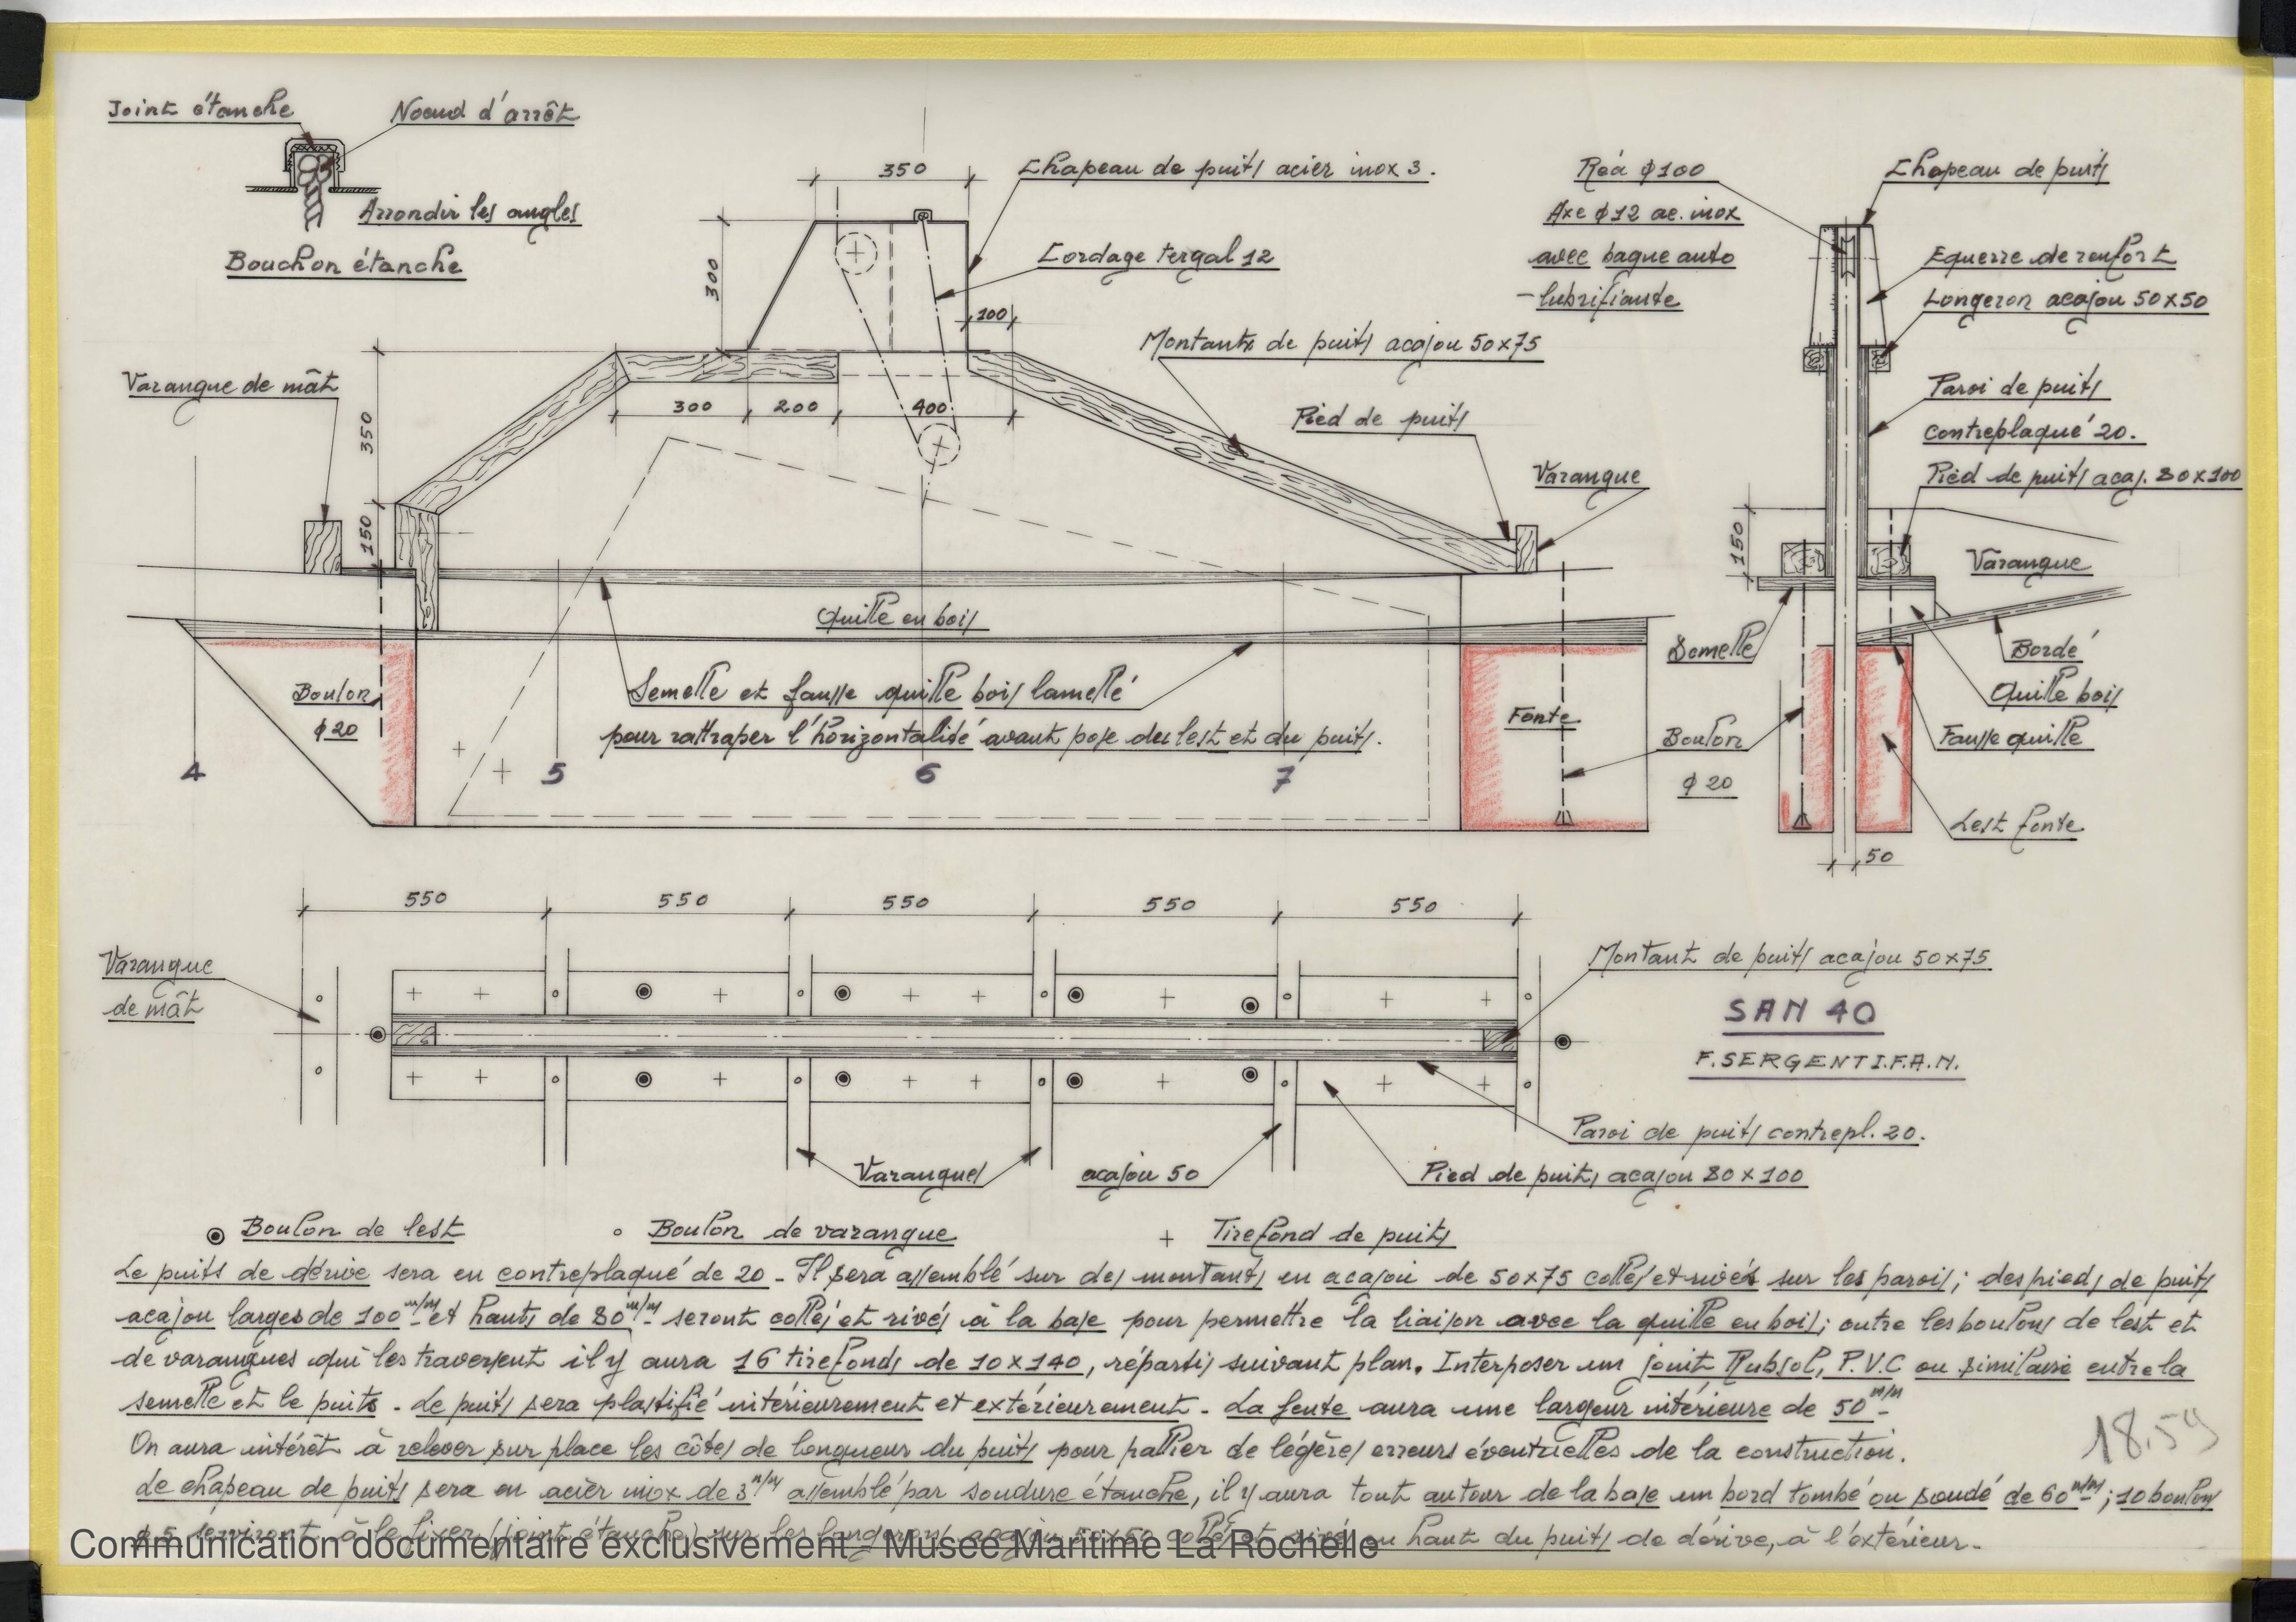 Joint étanche
Noeud d'arrêt
Arrondir les angles
Bouchon étanche
350
Chapeau de puits acier inox 3.
300
Cordage tergal 12
100
Montants de puits acajou 50x75
Varangue de mât
350
300
200
400
Pied de puits
Varangue
150
Quille en bois
Semelle et fausse quille bois lamellé
pour rattraper l'horizontalité avant pose du lest et du puits.
Boulon
φ20
Fonte
Boulon
φ 20
4
5
6
7
Réa φ100
Axe φ12 ac. inox
avec bague auto
-lubrifiante
Chapeau de puits
Equerre de renfort
Longeron acajou 50x50
Paroi de puits
contreplaqué 20.
Pied de puits acaj. 80x100
150
Varangue
Semelle
Bordé
Quille bois
Fausse quille
Lest fonte
50
550
550
550
550
550
Varangue
de mât
Montant de puits acajou 50x75
SAN 40
F. SERGENT I.F.A.N.
Paroi de puits contrepl. 20.
Varangues
acajou 50
Pied de puits acajou 80x100
Boulon de lest
Boulon de varangue
+ Tirefond de puits
Le puits de dérive sera en contreplaqué de 20 - Il sera assemblé sur des montants en acajou de 50x75 collés et rivés sur les parois; des pieds de puits
acajou larges de 100 m/m et hauts de 80 m/m seront collés et rivés à la base pour permettre la liaison avec la quille en bois; outre les boulons de lest et
de varangues qui les traversent il y aura 16 tirefonds de 10x140, répartis suivant plan. Interposer un joint Rubsol, P.V.C ou similaire entre la
semelle et le puits - Le puits sera plastifié intérieurement et extérieurement - La fente aura une largeur intérieure de 50 m/m
On aura intérêt à relever sur place les côtes de longueur du puits pour pallier de légères erreurs éventuelles de la construction.
Le chapeau de puits sera en acier inox de 3 m/m assemblé par soudure étanche, il y aura tout autour de la base un bord tombé ou soudé de 60 m/m; 10 boulons
φ 5 serviront à le fixer (joint étanche) sur les longerons acajou 50x50 collés et rivés en haut du puits de dérive, à l'extérieur.
18.59
Communication documentaire exclusivement - Musée Maritime La Rochelle